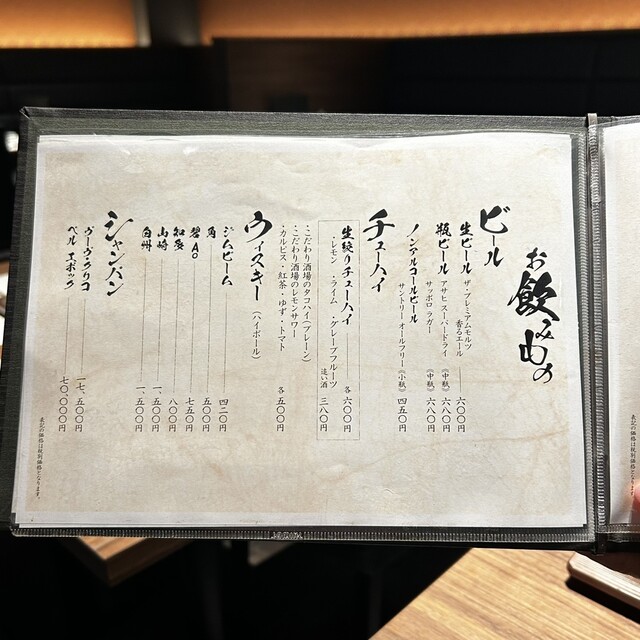 お飲みもの
ビール
生ビール ザ・プレミアムモルツ 香るエール 六〇〇円
瓶ビール アサヒ スーパードライ (中瓶) 六八〇円
サッポロ ラガー (中瓶) 六八〇円
ノンアルコールビール
サントリー オールフリー (小瓶) 四五〇円
チューハイ
生絞りチューハイ 各 六〇〇円
・レモン ・ライム ・グレープフルーツ 追い酒 三八〇円
・こだわり酒場のタコハイ(プレーン)
・こだわり酒場のレモンサワー
・カルピス・紅茶・ゆず・トマト 各 五〇〇円
ウイスキー (ハイボール)
ジムビーム 四二〇円
角 五〇〇円
碧Ao 七五〇円
知多 八〇〇円
山崎 一、五〇〇円
白州 一、五〇〇円
シャンパン
ヴーヴ・クリコ 一七、五〇〇円
ベル エポック 七〇、〇〇〇円
表記の価格は税別価格となります。
表記の価格は税別価格となります。